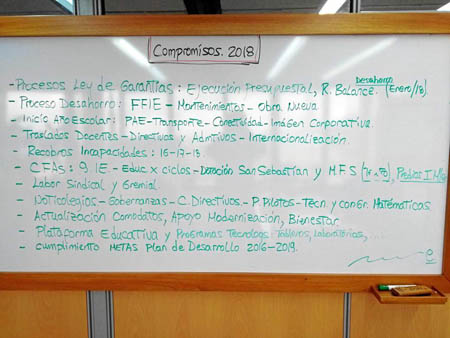 Compromisos. 2018
Desahorro
- Procesos Ley de Garantías: Ejecución Presupuestal, R. Balance. (Enero/18)
- Proceso Desahorro: FFIE - Mantenimientos - Obra Nueva
- Inicio Año Escolar: PAE - Transporte - Conectividad - Imágen Corporativa.
- Traslados Docentes - Directivos y Admtivos - Internacionalización.
- Recobros Incapacidades: 16-17-18.
- CFAs: 9 IE - Educ x ciclos - Dotación San Sebastian y MFS Predios
- Labor Sindical y Gremial.
- Noticolegios - Gobernanzas - C. Directivos. - P. Pilotos - Tecn. y Matemáticas.
- Actualización Comodatos, Apoyo Modernización, Bienestar
- Plataforma Educativa y Programas Tecnolog: Tableros, Laboratorios, ...
- Cumplimiento METAS Plan de Desarrollo 2016-2019.